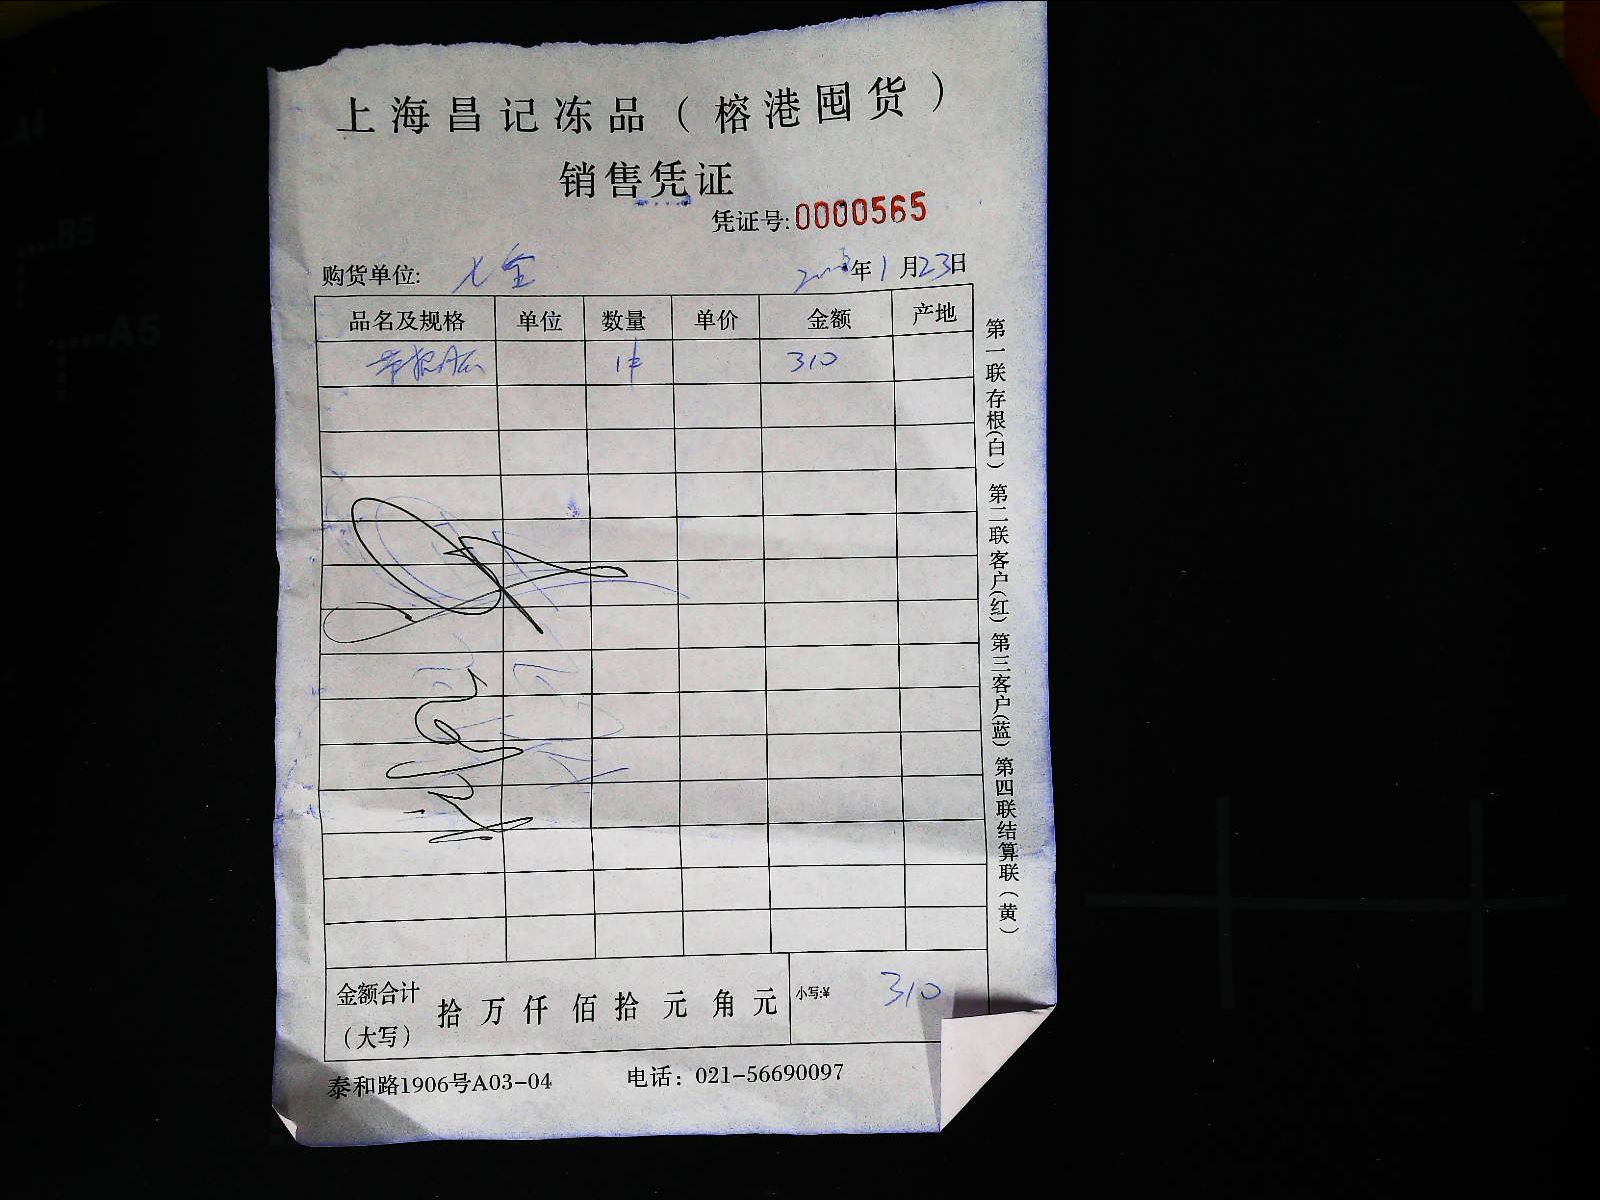 上海昌记冻品(榕港囤货)
销售凭证
凭证号:0000565
购货单位: 七宝
年1月23日
品名及规格 单位 数量 单价 金额 产地
1件 310
金额合计(大写) 拾 万 仟 佰 拾 元 角 元 小写:¥ 310
泰和路1906号A03-04 电话：021-56690097
第一联存根(白) 第二联客户(红) 第三客户(蓝) 第四联结算联(黄)